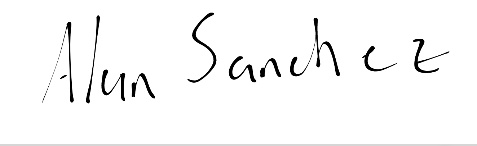 Alun Sanchez